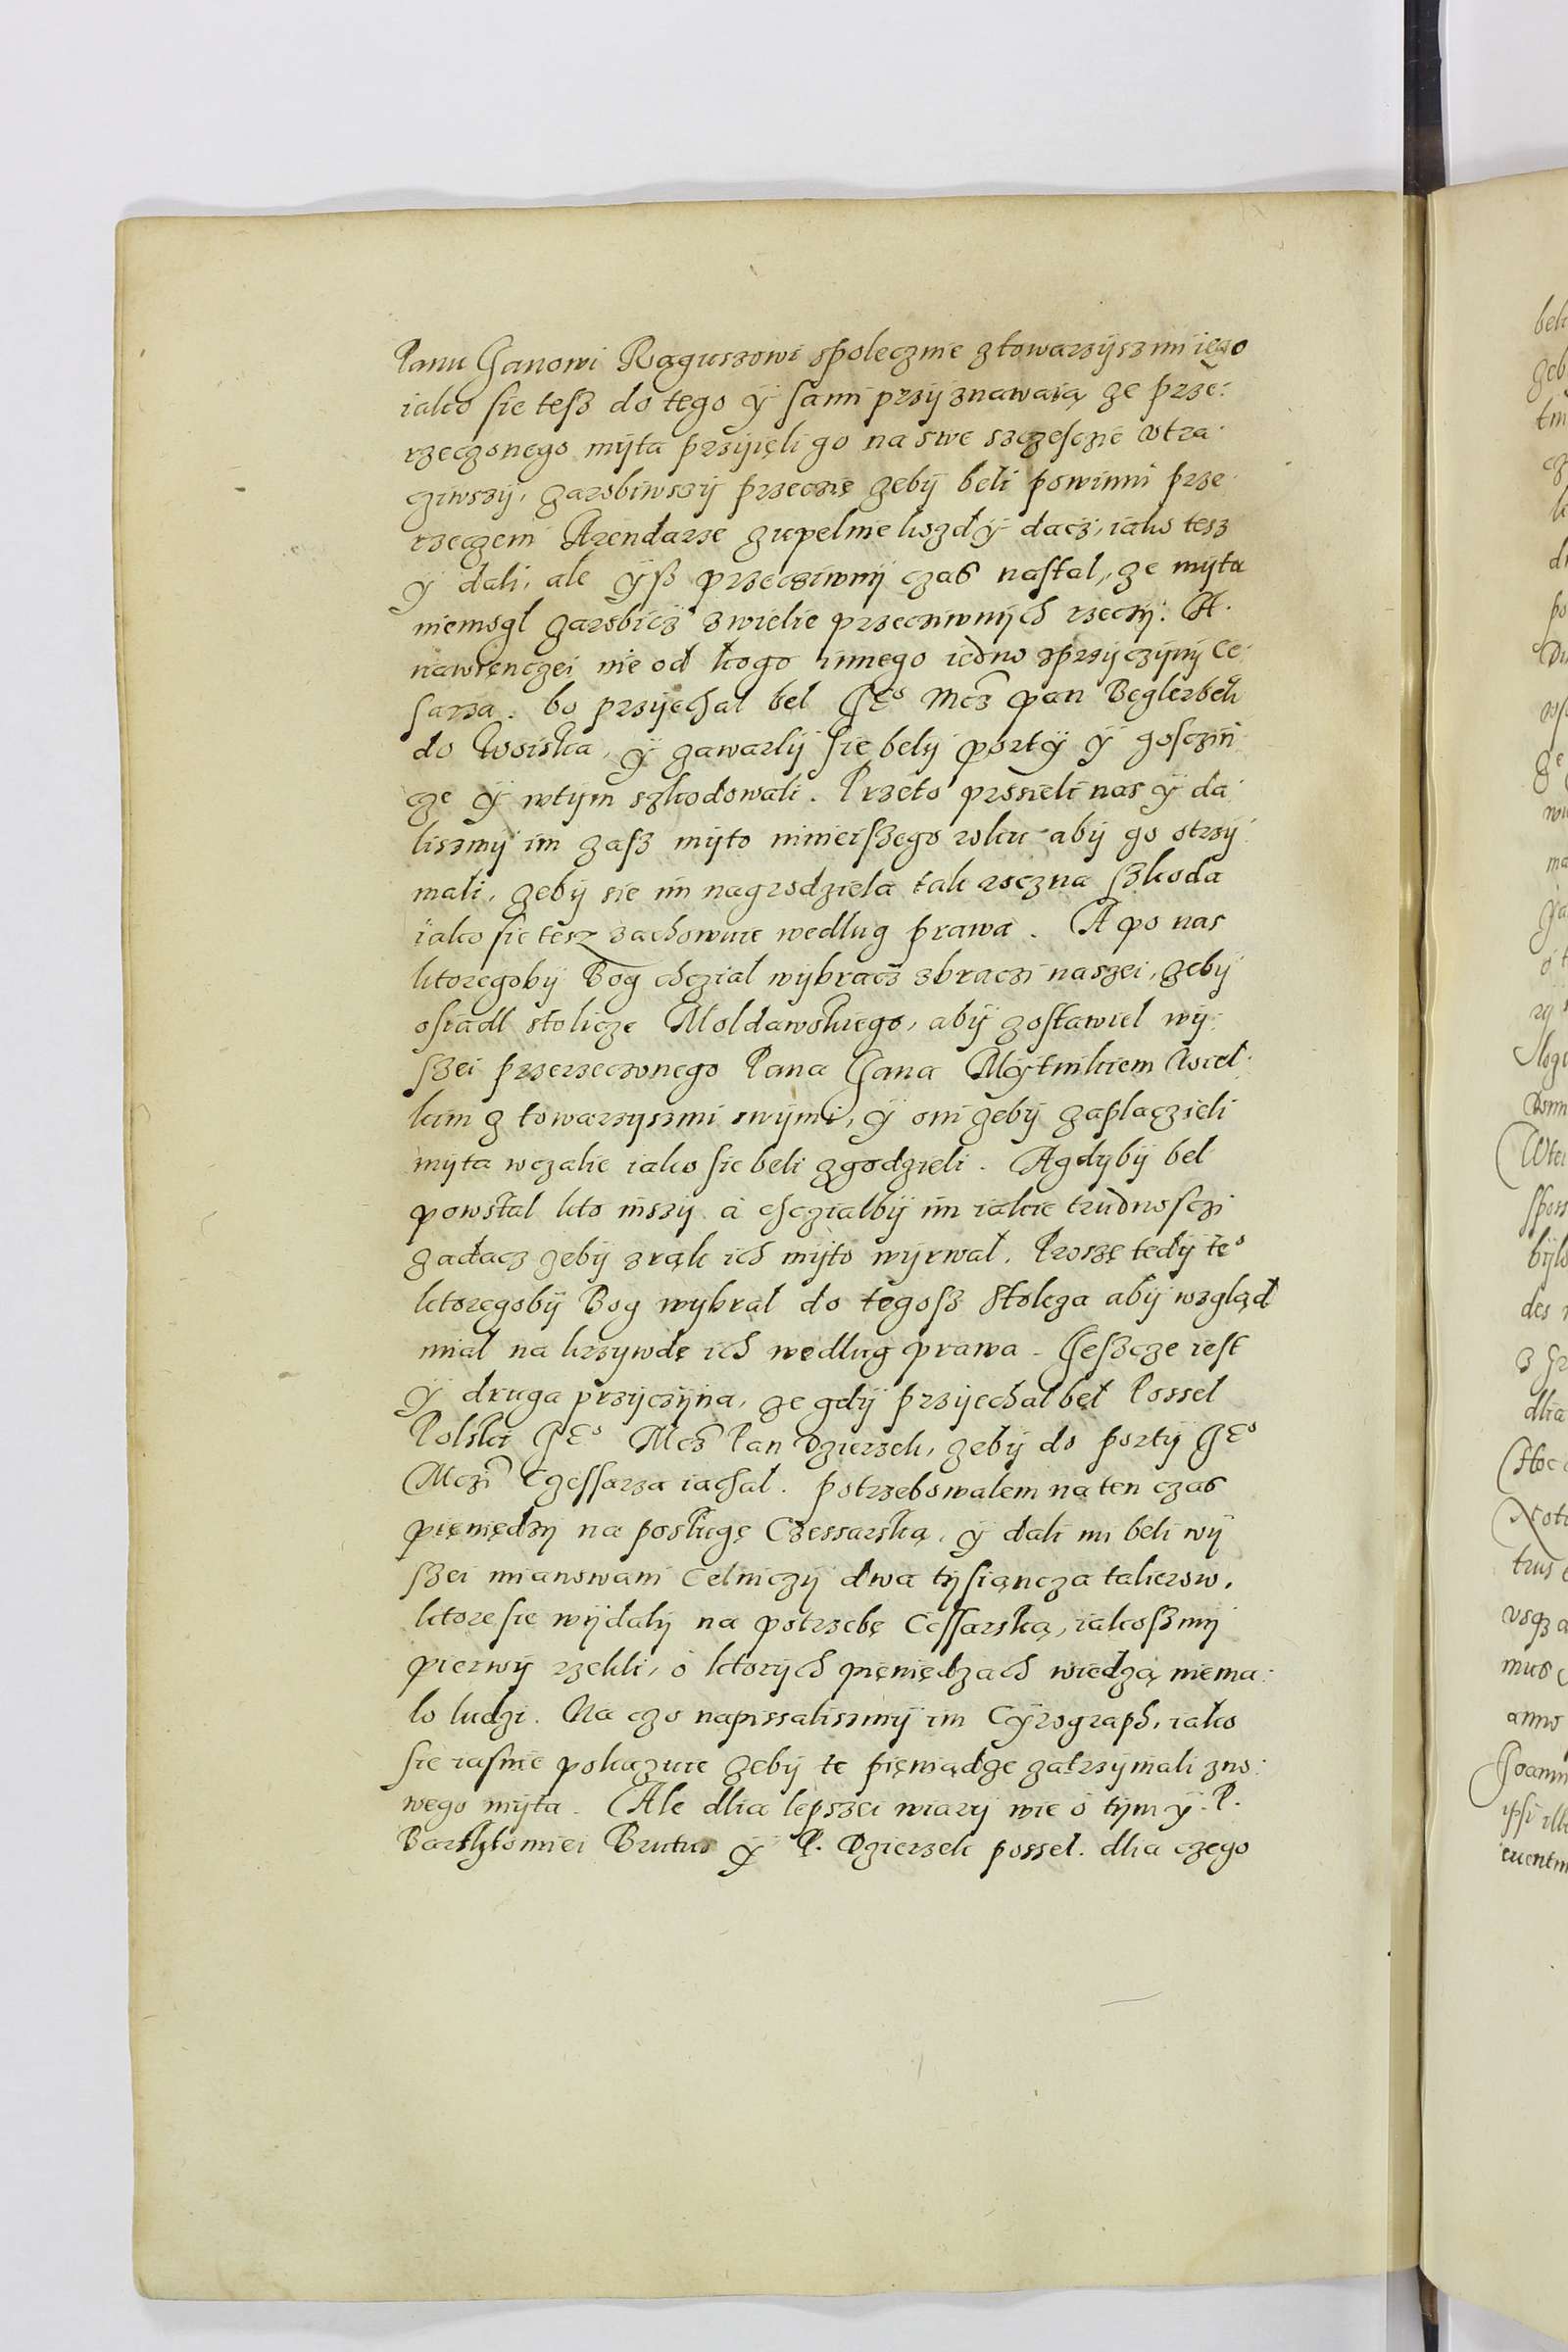 Panu Janowi Raguszowi społecznie z towarzyszmi iego
iako sie tesz do tego ÿ sami przyznawaią ze prze:
rzeczonego myta przyięli go na swe szczesczie vtra:
cziwszy, zarobiwszy przeczię zeby beli powinni prze:
rzeczeni Arendarze zupelnie kozdÿ dacz, iako tesz
ÿ dali, ale ÿsz przecziwny czas nastal, ze myta
niemogl zarobicz z wielie przecziwnych rzeczy. A
nawięnczei nie od kogo innego iedno z przyczyny Ce:
sarza. bo przyechal bel JEo Mcz pan Beglerbek
do Woiska, ÿ zawarly sie bely porty ÿ gosczin:
cze ÿ wtym szkodowali. Przeto prosieli nas ÿ da:
liszmy im zasz myto ninieiszego roku aby go otrzy:
mali, zeby sie im nagrodziela tak roczna szkoda
iako sie tesz zachowuie wedlug prawa. A po nas
ktoregoby Bog chczial wybracz z braczi naszei, zeby
osiadl stolicze Moldawskiego, aby zostawiel wy:
szei przerzeczonego Pana Jana Mÿtnikiem Wiel:
kim z towarzyszmi swymi, ÿ oni zeby zaplaczieli
myta wczalie iako sie beli zgodzieli. A gdyby bel
powstal kto inszy a chczialby im iakie trudnosczi
zadacz zeby z rąk ich myto wyrwal. Proszę tedy teo
ktoregoby Bog wybral do tegosz Stolcza aby wzgląd
mial na krzywdę ich wedlug prawa. Jeszcze iest
ÿ druga przyczyna, ze gdy przyechal bel Possel
Polski JEo Mcz Pan Dzierzek, zeby do porty JEo
Mczi Czessarza iachal. potrzebowalem na ten czas
pięniędzy na posługę Czessarską, ÿ dali mi beli wy
szei mianowani Celniczy dwa tysiącza talierow,
ktore sie wydaly na potrzebę Cessarską, iakoszmy
pierwy rzekli, o ktorych pięniędzach wiedzą niema:
lo ludzi. Na czo napissaliszmy im Cyrograph, iako
sie iasnie pokazuie zeby te pięniądze zatrzymali z no:
wego myta. Ale dlia lepszei wiary wie o tym ÿ P.
Barthłomiei Brutus ÿ P. Dzierzek possel. dlia czego